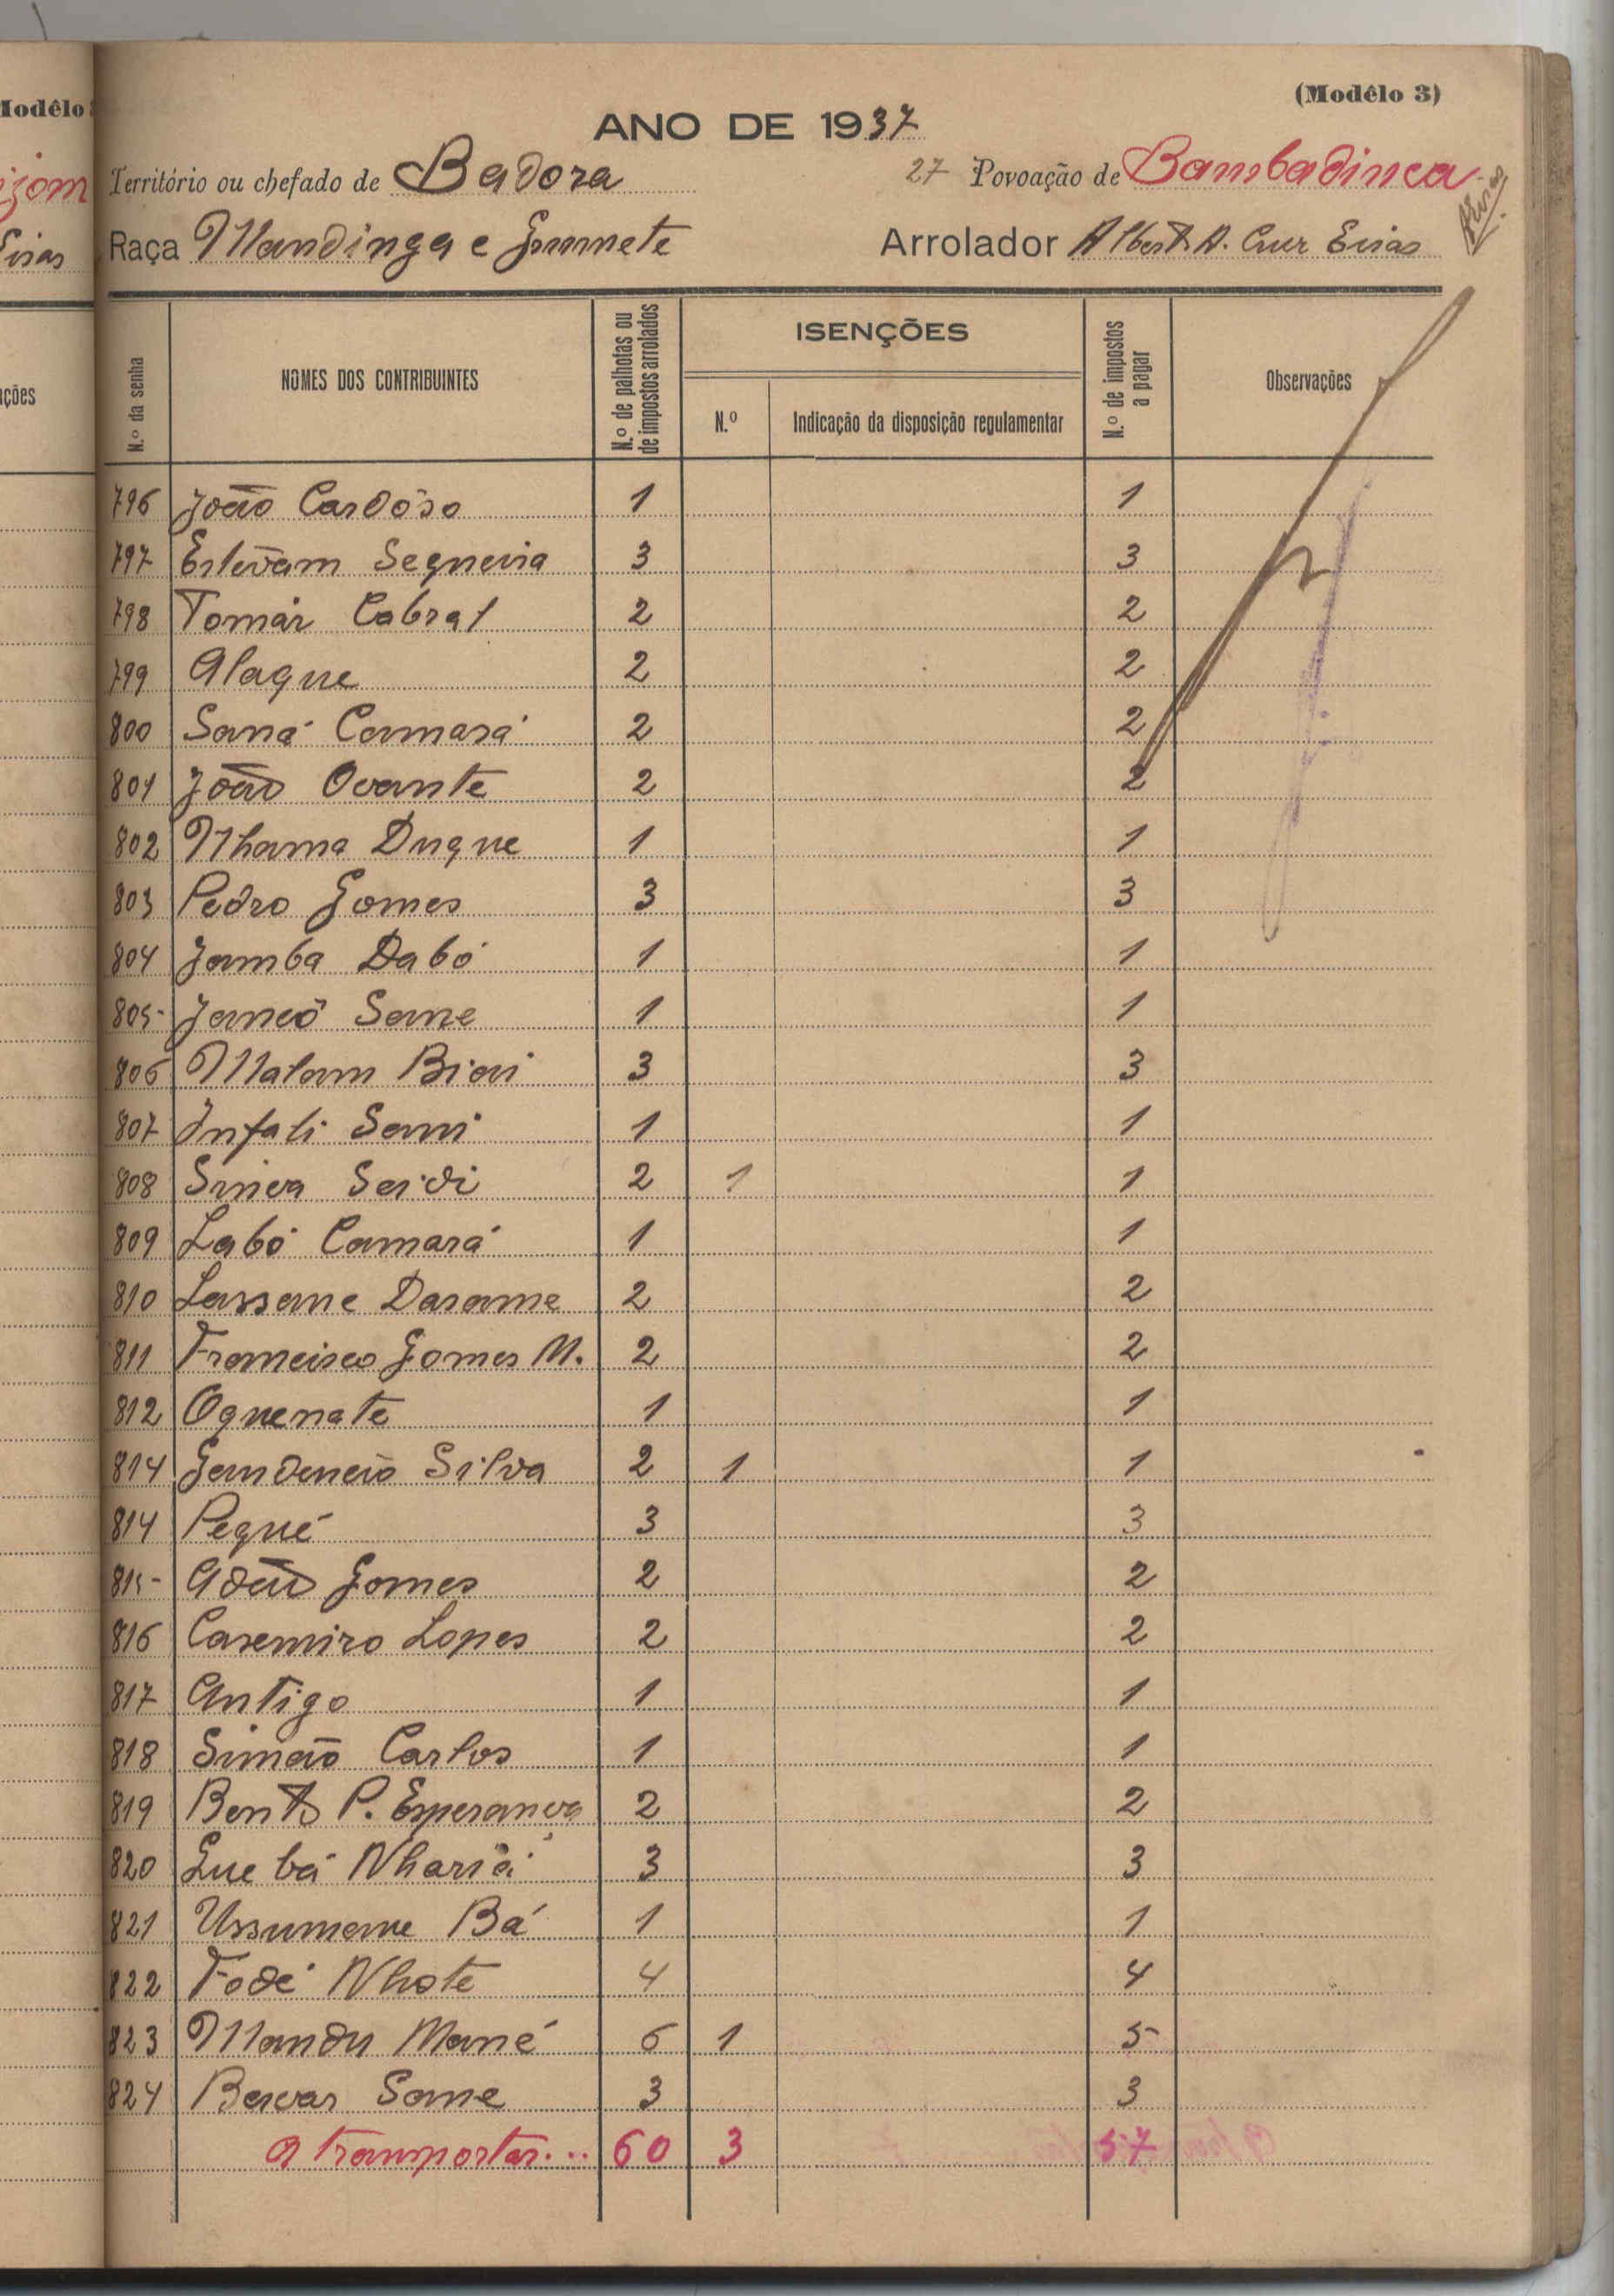 (Modêlo 3)
ANO DE 1937
Território ou chefado de Badora 27 Povoação de Bambadinca
Raça Mandinga e Grumete Arrolador Alberto A. Cruz
N.º da senha NOMES DOS CONTRIBUINTES N.º de palhotas ou de impostos arrolados ISENÇÕES N.º Indicação da disposição regulamentar N.º de impostos a pagar Observações
796 João Cardôso 1 1
797 Estevam Sequeira 3 3
798 Tomár Cabral 2 2
799 Alaque 2 2
800 Saná Camará 2 2
801 João Ovante 2 2
802 Nhama Duque 1 1
803 Pedro Gomes 3 3
804 Jamba Dabó 1 1
805 Jancó Sane 1 1
806 Malam Biai 3 3
807 Infali Sani 1 1
808 Seidi 2 1 1
809 Labó Camará 1 1
810 Lassane Darame 2 2
811 Francisco Gomes M. 2 2
812 Oquenate 1 1
814 Gaudencio Silva 2 1 1
814 Pequé 3 3
815 Adão Gomes 2 2
816 Casemiro Lopes 2 2
817 Antigo 1 1
818 Simão Carlos 1 1
819 Bento P. Esperança 2 2
820 3 3
821 Ussumane Bá 1 1
822 Fodé Nhote 4 4
823 Mandu Mané 6 1 5
824 Sane 3 3
A transportar... 60 3 57